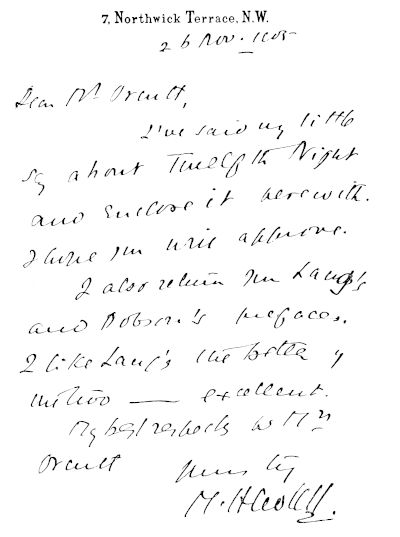 7, Northwick Terrace, N.W.
26 Nov. 1905
Dear Mr Orcutt,
I've said my little
say about Twelfth Night
and enclose it herewith.
I hope you will approve.
I also return you Lang's
and Dobson's prefaces.
I like Lang's the better of
the two — excellent.
My best respects to Mrs
Orcutt
Yours try
M. H.